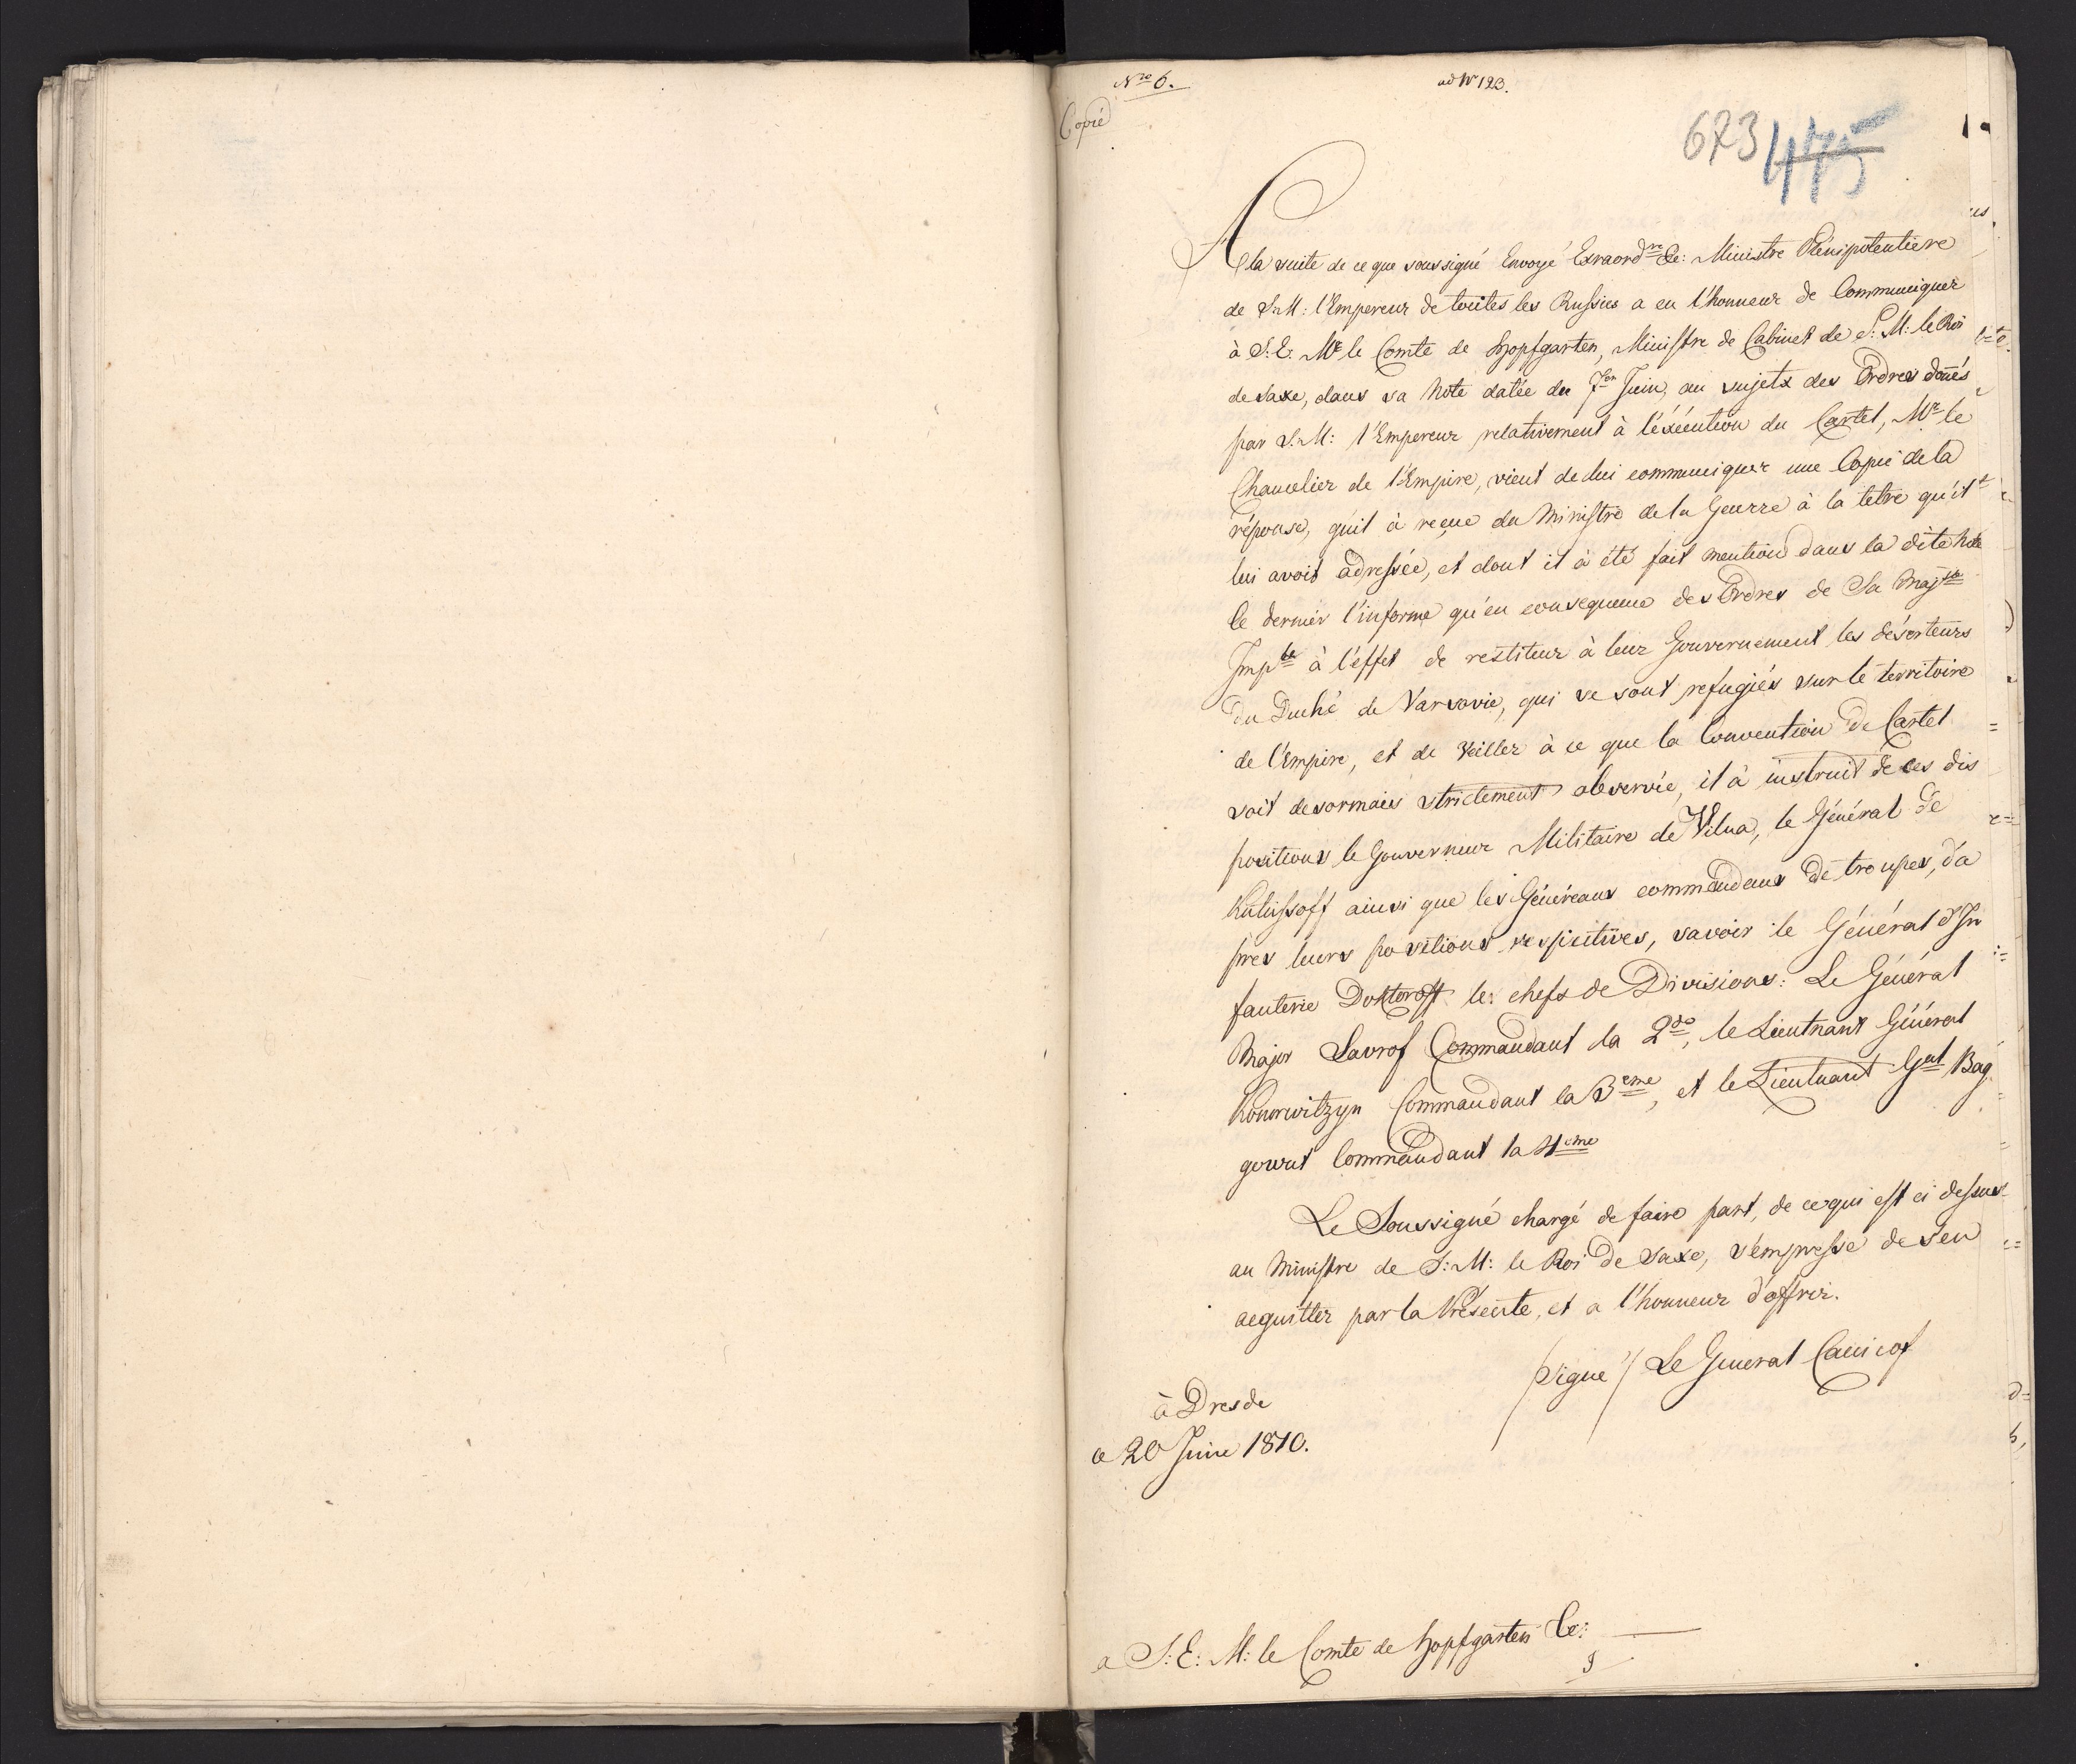 Nro 6.
ad Nr 123.
Copié
673 475
A la suite de ce que soussigné Envoyé Exraordre &: Ministre Plénipotentiere
de S. M: l'Empereur de toutes les Russies a eu l'honneur de Communiquer
à S: E. Mr le Comte de Hopfgarten, Ministre de Cabinet de S: M: le Roi
de Saxe, dans sa Note datée du 7en Juin, au sujets des Ordres donés
par S. M: l'Empereur relativement à l'éxécution du Cartel, Mr le
Chancelier de l'Empire, vient de lui communiquer une Copie de la
réponse, qu'il à reçue du Ministre de la Geurre à la letre qu'il
lui avoit adressée, et dont il à été fait mention dans la dite Note
le dernier l'informe qu'en consequence des Ordres de Sa Majsté
Imple à l'éffet de restituer à leur Gouvernement les déserteurs
du Duché de Varsovie, qui se sont refugiés sur le territoire
de l'Empire, et de veiller à ce que la Convention de Cartel
soit desormais strictement observée, il à instruit de ces dis
positions le Gouverneur Militaire de Vilna, le Général de
Kutussoff ainsi que les Généreaux commendans de troupes, d'a
pres leurs positions respectives, savoir le Général d'In
fanterie Doktoroff les chefs de Divisions: Le Général
Major Lavrof Commandant la 2de, le Lieutnant Général
Konowitzyn Commandant la 3eme, et le Lieutnant Gal Bag
gowut Commandant la 4eme
Le Soussigné chargé de faire part, de ce qui est ci dessus
au Ministre de S: M: le Roi de Saxe, s'empresse de s'en
acquitter par la Présente, et a l'honneur d'offrir.
/Signé/ Le General Canicof
à Dresde
ce 20 Juine 1810.
a S: E: M: le Comte de Hopfgarten &: